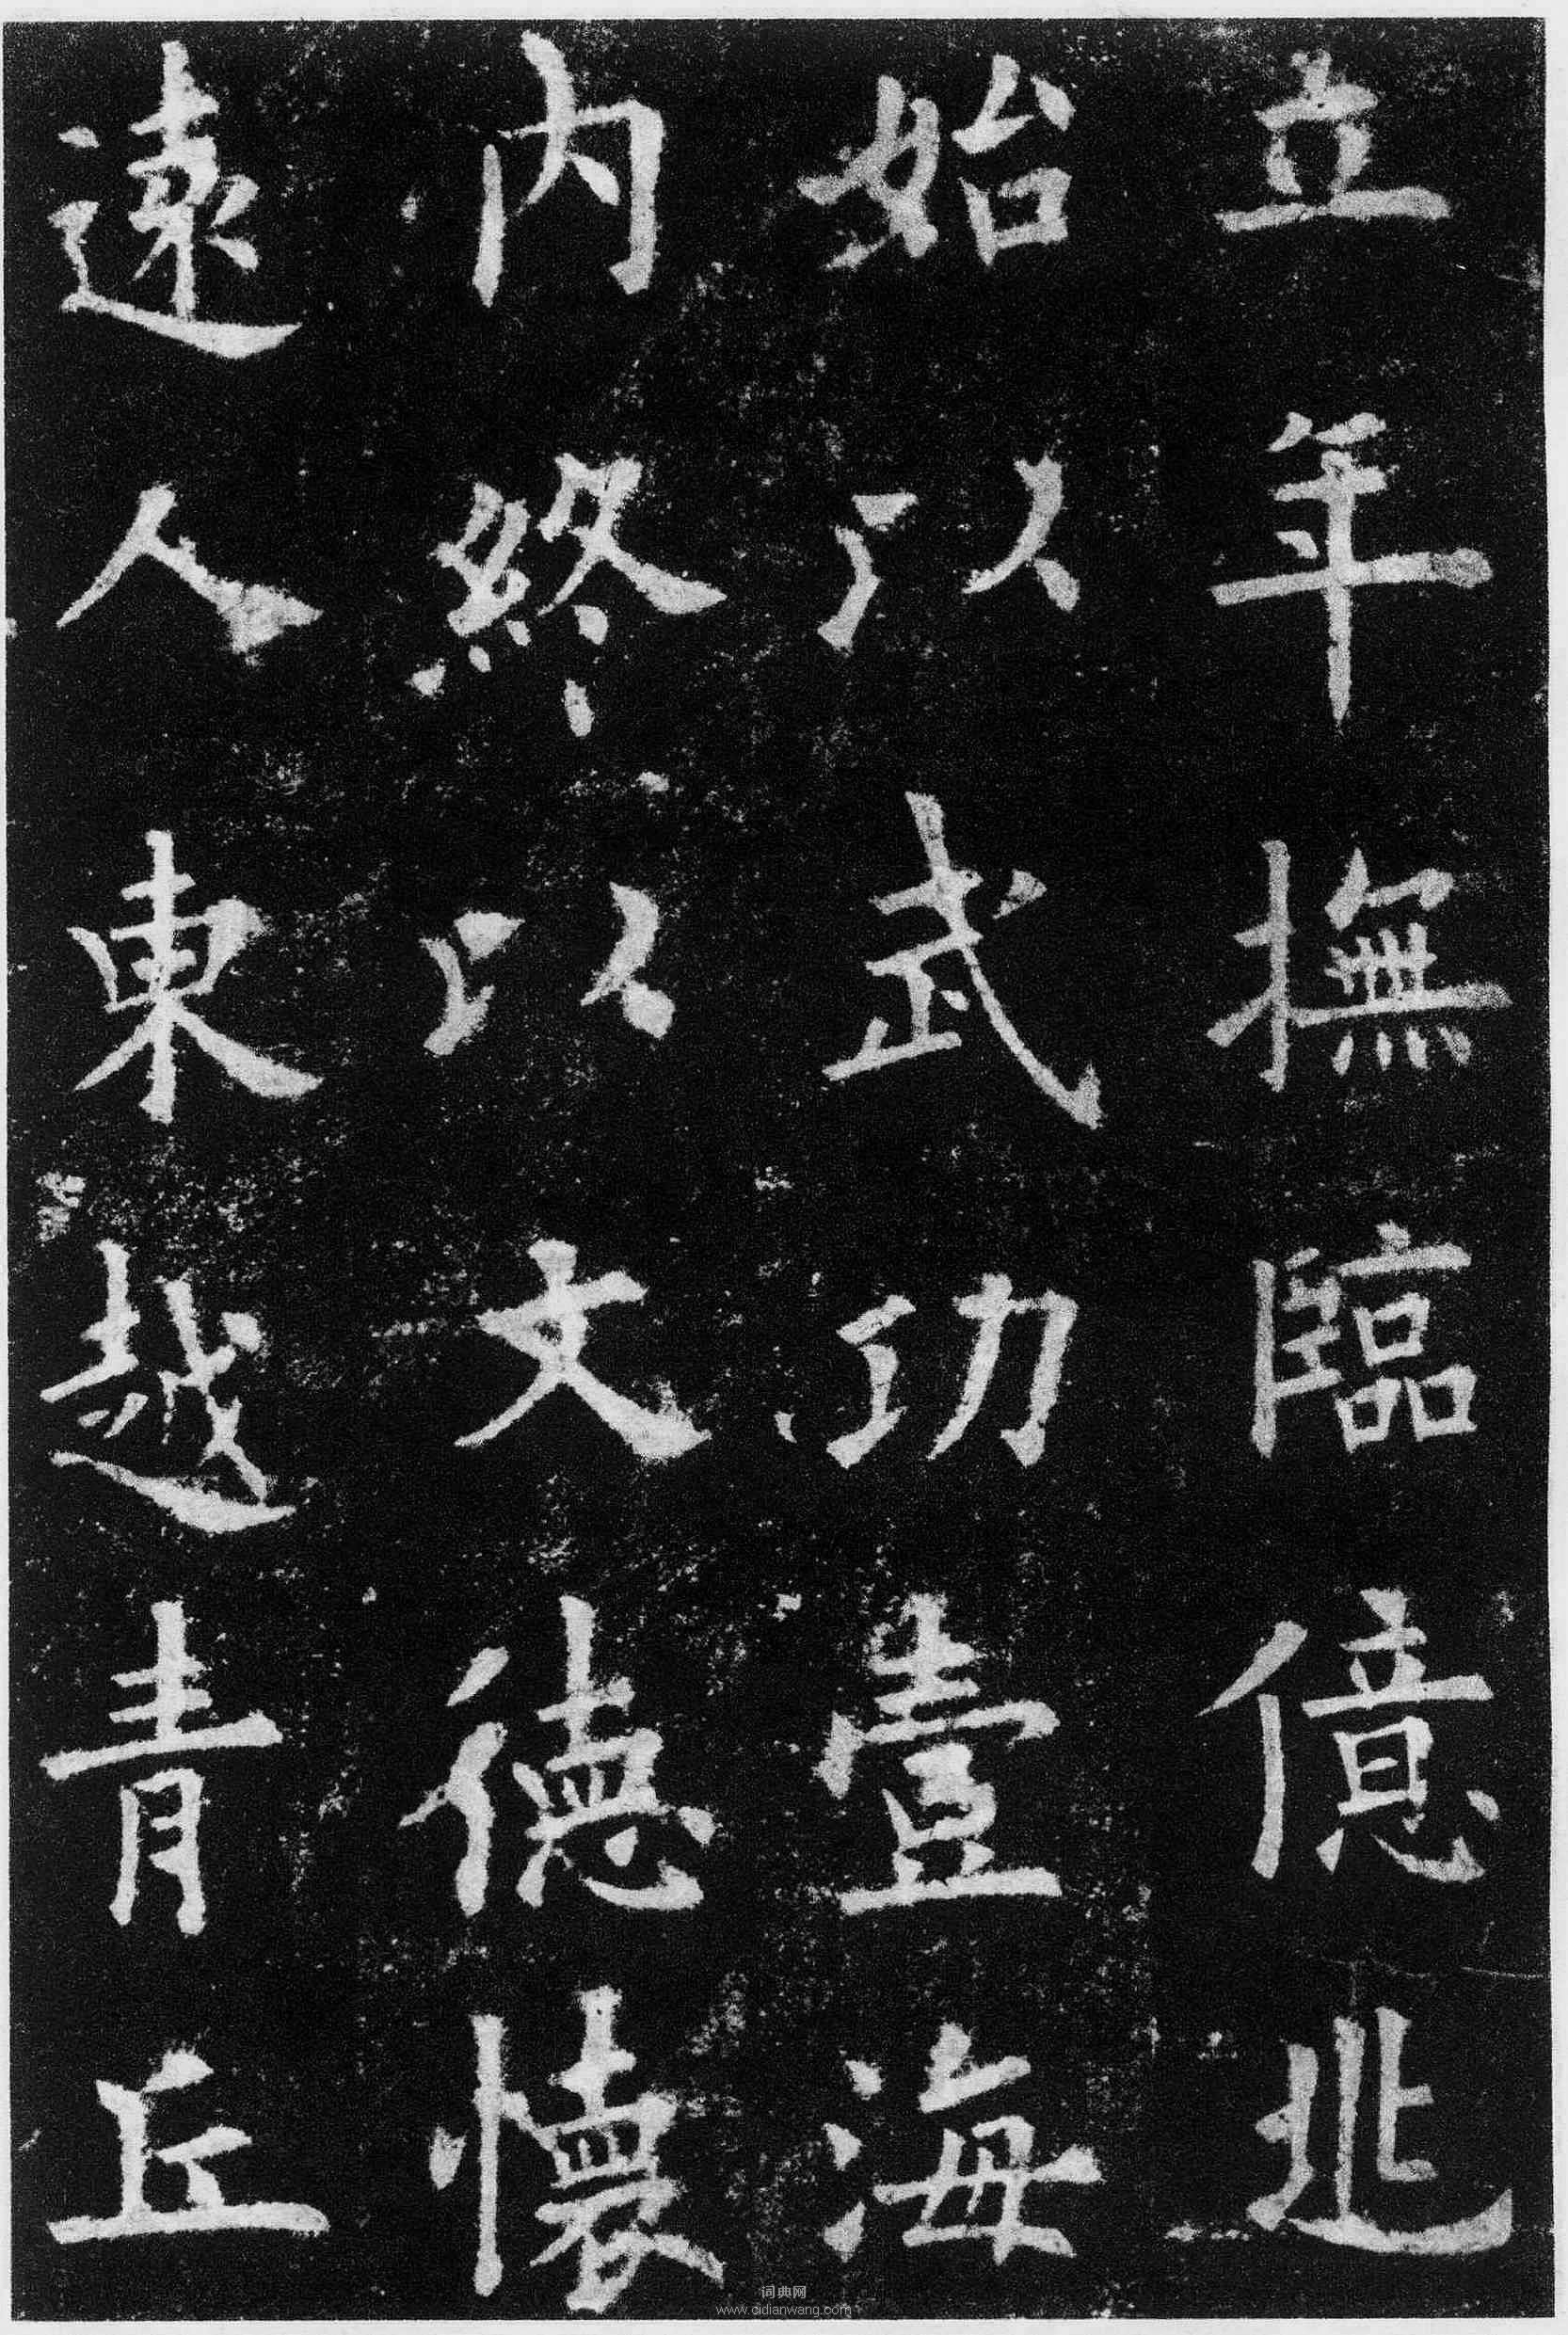 立年撫臨億兆
始以武功壹海
内終以文德懷
遠人東越青丘
词典网
www.cidianwang.com